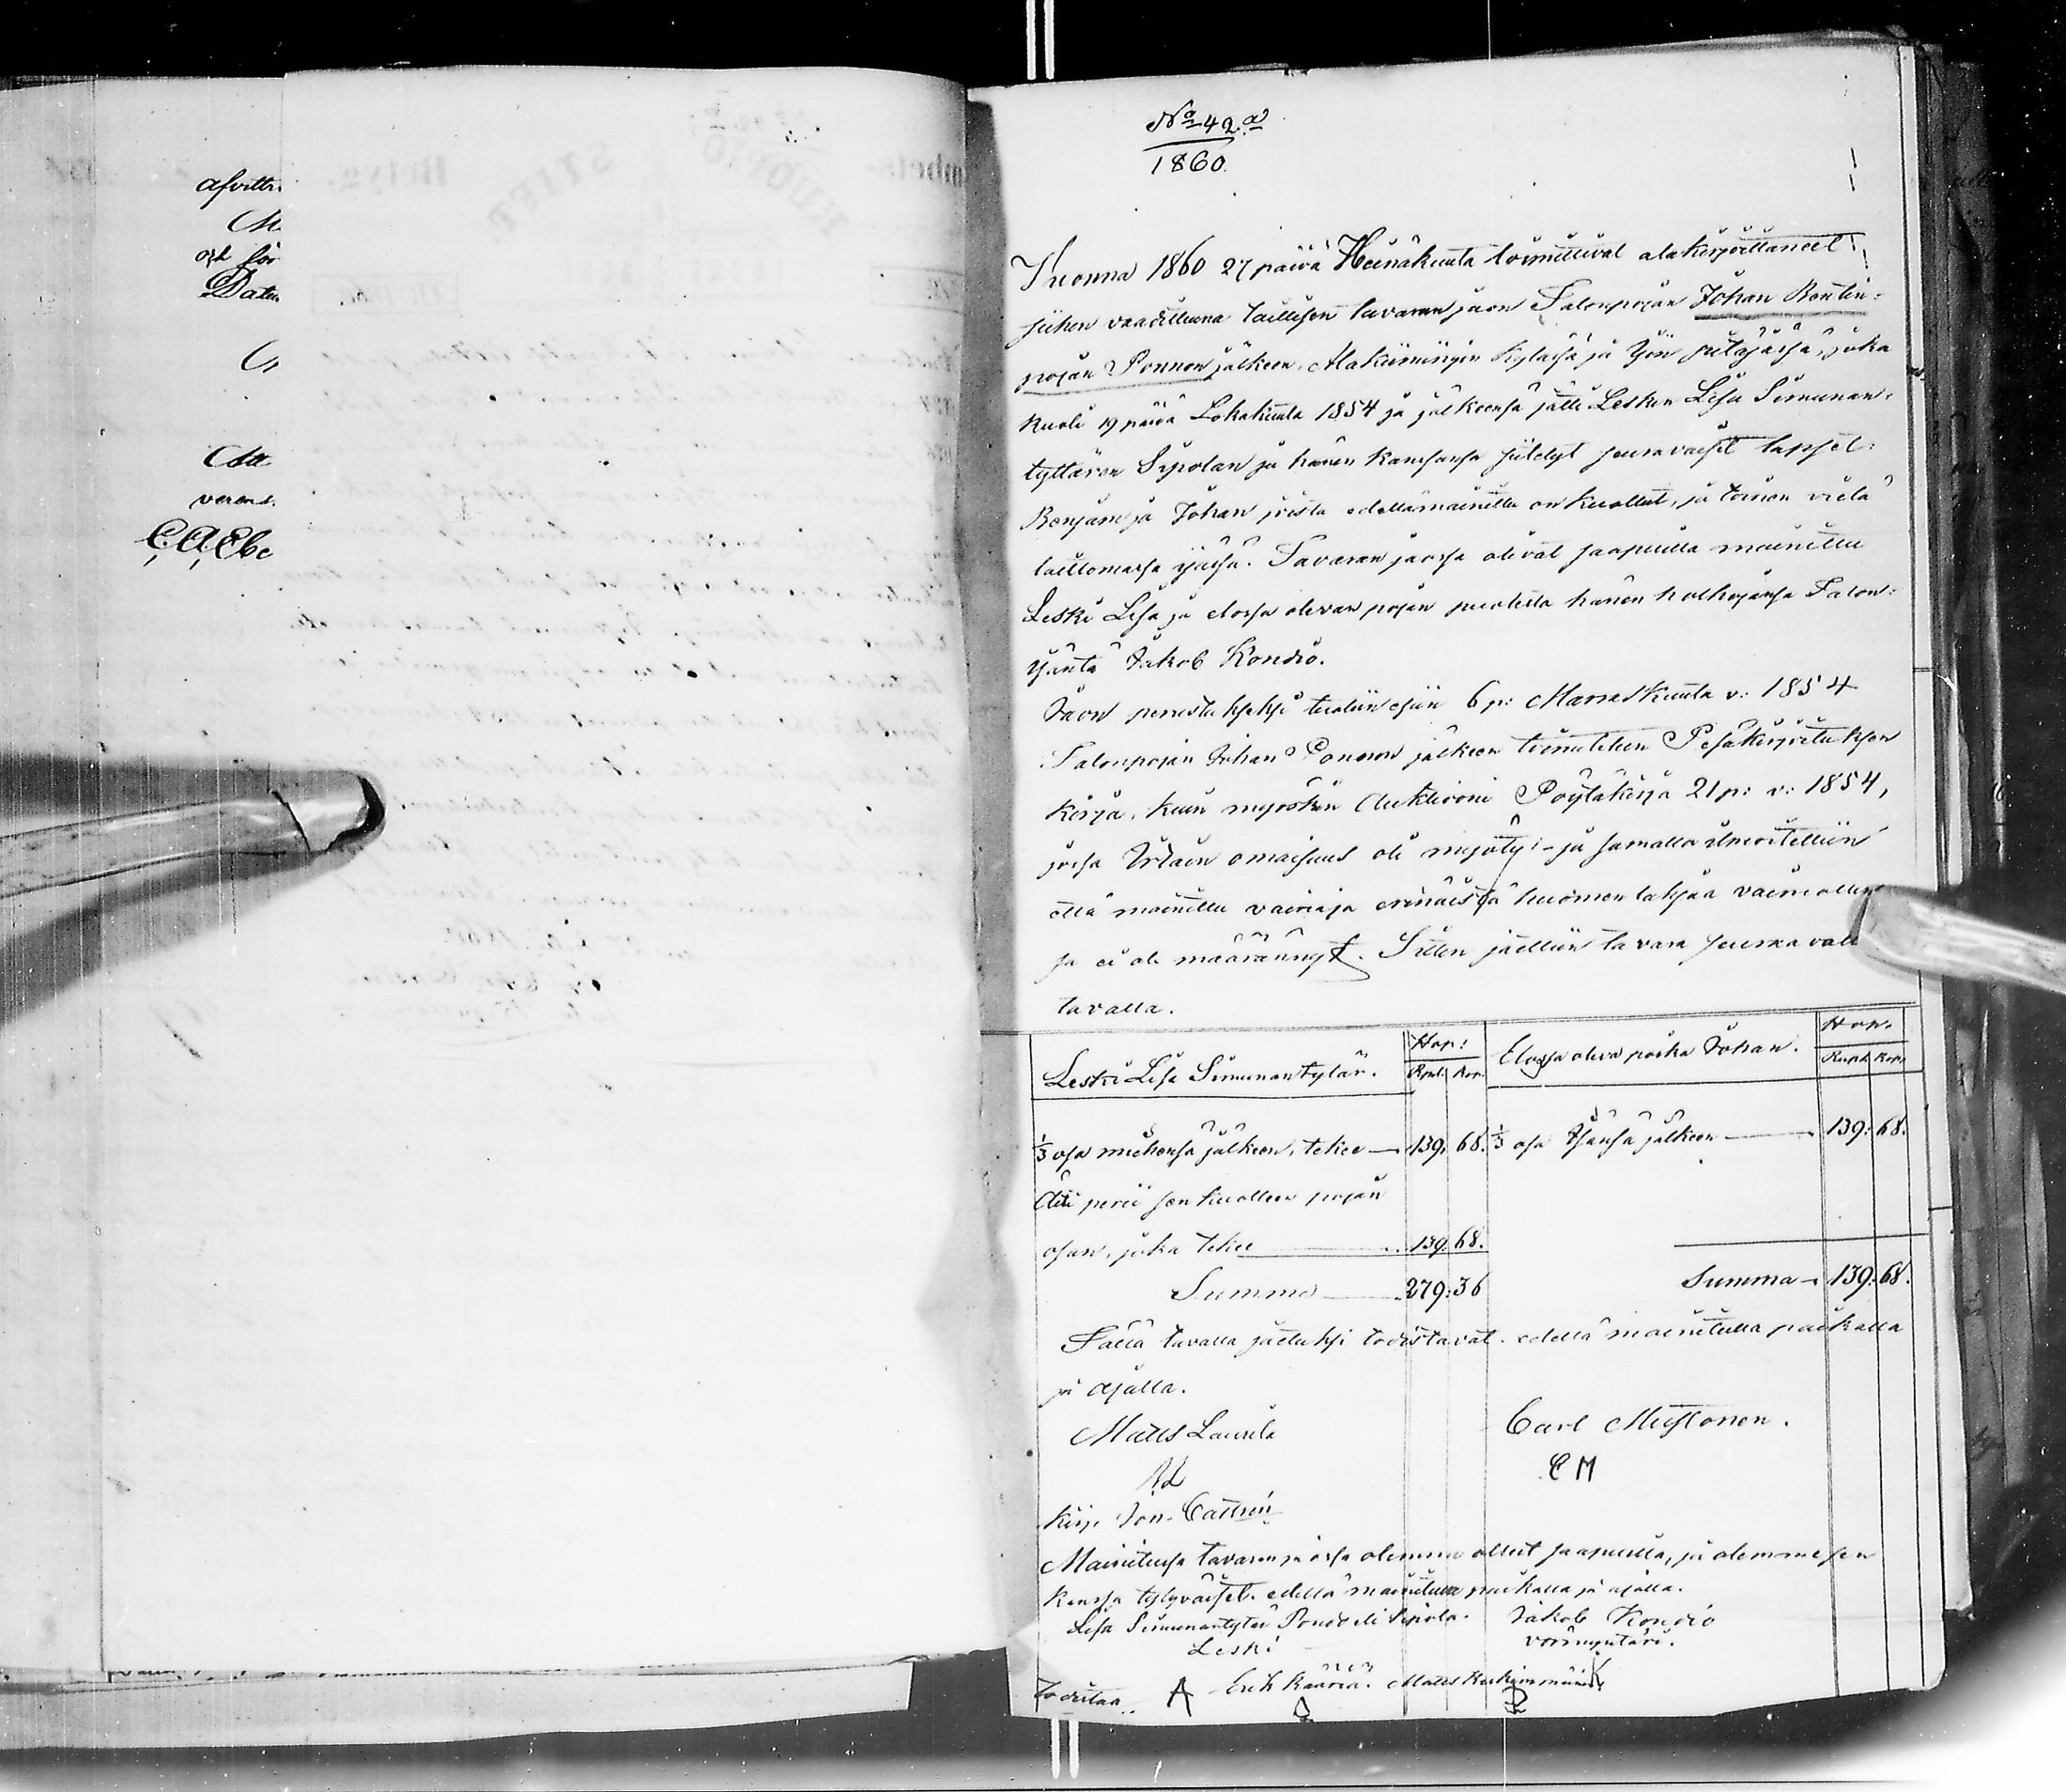 afvittr
M
och för
Date
verens.
C. A. Ebe
No 42 a
1860.
Vuonna 1860 27 päivä Heinäkuuta toimittivat alakirjoittaneet
siihen vaadittuna laillisen tavaran jaon Talonpojan Johan Benbin-
pojan Ponnon jälkeen Alakiimingin kylässä ja Iijön pitäjässä, joka
kuoli 19 päivä Lokakuuta 1854 ja jälkeensä jätti Lesken Lisa Simunan-
tyttären Sipolan ja hänen kanssansa siitetyt seuravaiset lapset:
Benjam ja Johan joista edellämainittu on kuollut, ja toinen vielä
laittomassa ijässä. Tavaran jaossa olivat saapuilla mainittu
Leski Lisa ja elossa olevan pojan puolesta hänen holhojansa Talon-
Isäntä Jakob Kondio.
Jaon perustukseksi tuotiin esiin 6 p: Marraskuuta v: 1854
Talonpojan Johan Ponnon jälkeen toimitetun Pesäkirjoituksen
kirja, kuin myöskin Auktioni Pöytäkirja 21 p: v: 1854,
jossa Irtain omaisuus oli myöty:- ja samalla ilmoitettiin
että mainittu vainaja erinäistä huomen lahjaa vaimollen
sa ei ole määrännyt. Sitten jaettiin tavara seuraavalla
tavalla.
Leski Lisa Simunantytär. Hop: Rupl. Kop. Elossa oleva poika Johan. Hop. Rupl. Kop.
1/3 osa miehensä jälkeen, tekee — 139. 68. 1/3 osa Isänsä jälkeen — 139: 68.
Äiti perii sen kuolleen pojan
osan, joka tekee — 139. 68.
Summa — 279: 36 Summa — 139: 68.
Tällä tavalla jaetuksi todistavat. edellä mainitulla paikalla
ja ajalla.
Matts Laurila Carl Mustonen.
ML CM
Kirj. Jon. Castrén
Mainitussa tavaran jaossa olemme olleet saapuilla, ja olemme sen
kanssa tytyväiset. edellä mainitulla paikalla ja ajalla.
Lisa Simunantytär Sipola. Jakob Kondio
Leski vormyntäri.
todistaa A Erik Kääriä. Matts Keskimmäinen